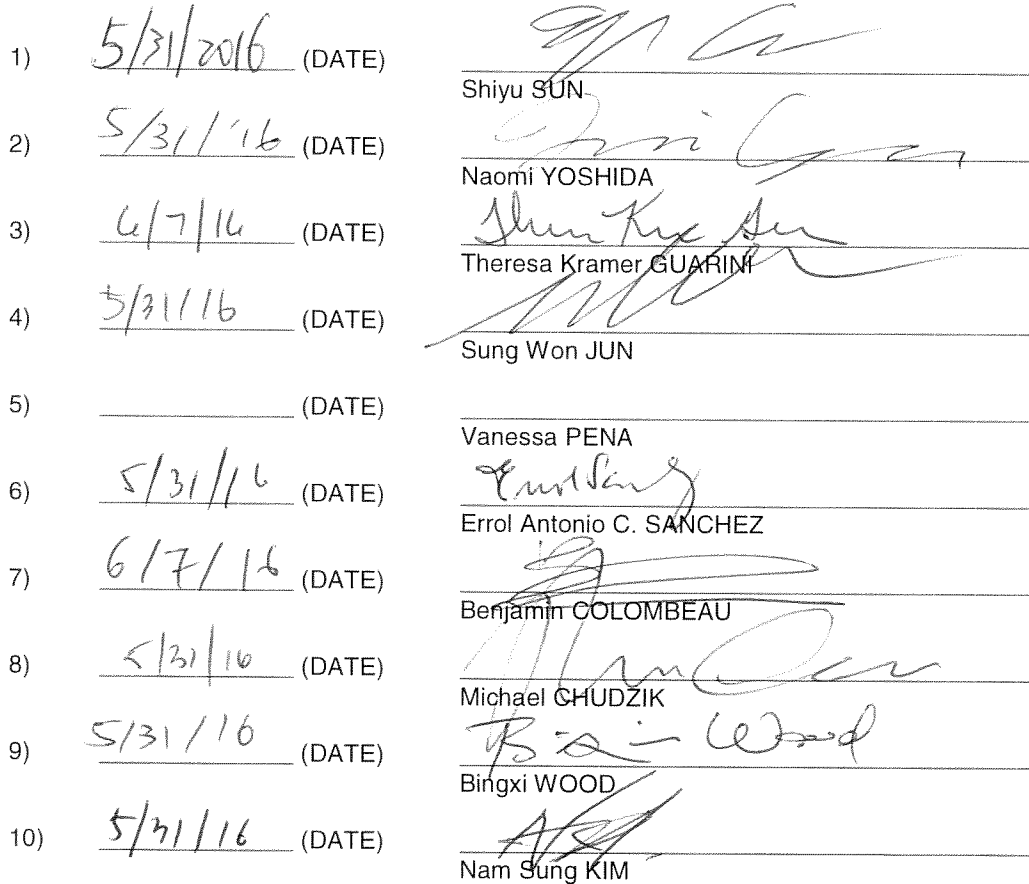 1) 5/31/2016 (DATE)
Shiyu SUN
2) 5/31/'16 (DATE)
Naomi YOSHIDA
3) 6/7/16 (DATE)
Theresa Kramer GUARINI
4) 5/31/16 (DATE)
Sung Won JUN
5) (DATE)
Vanessa PENA
6) 5/31/16 (DATE)
Errol Antonio C. SANCHEZ
7) 6/7/16 (DATE)
Benjamin COLOMBEAU
8) 5/31/16 (DATE)
Michael CHUDZIK
9) 5/31/16 (DATE) Bingxi Wood
Bingxi WOOD
10) 5/31/16 (DATE)
Nam Sung KIM